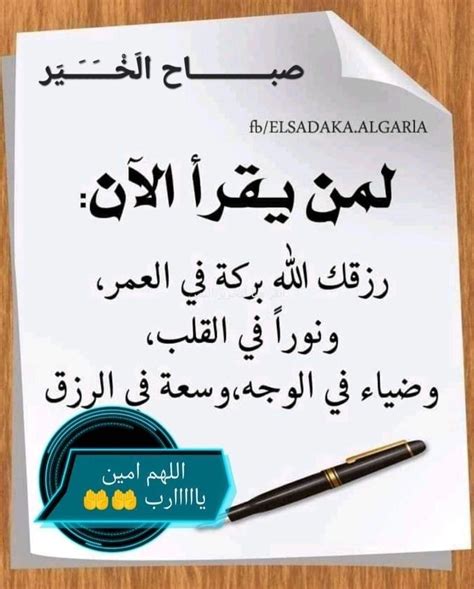 صبـــــــاح الَخْـــَـــيَـر
fb/ELSADAKA.ALGARIA
لمن يقرأ الآن:
رزقك الله بركة في العمر،
ونوراً في القلب،
وضياء في الوجه،وسعة في الرزق
اللهم امين
يااااارب 🤲 🤲